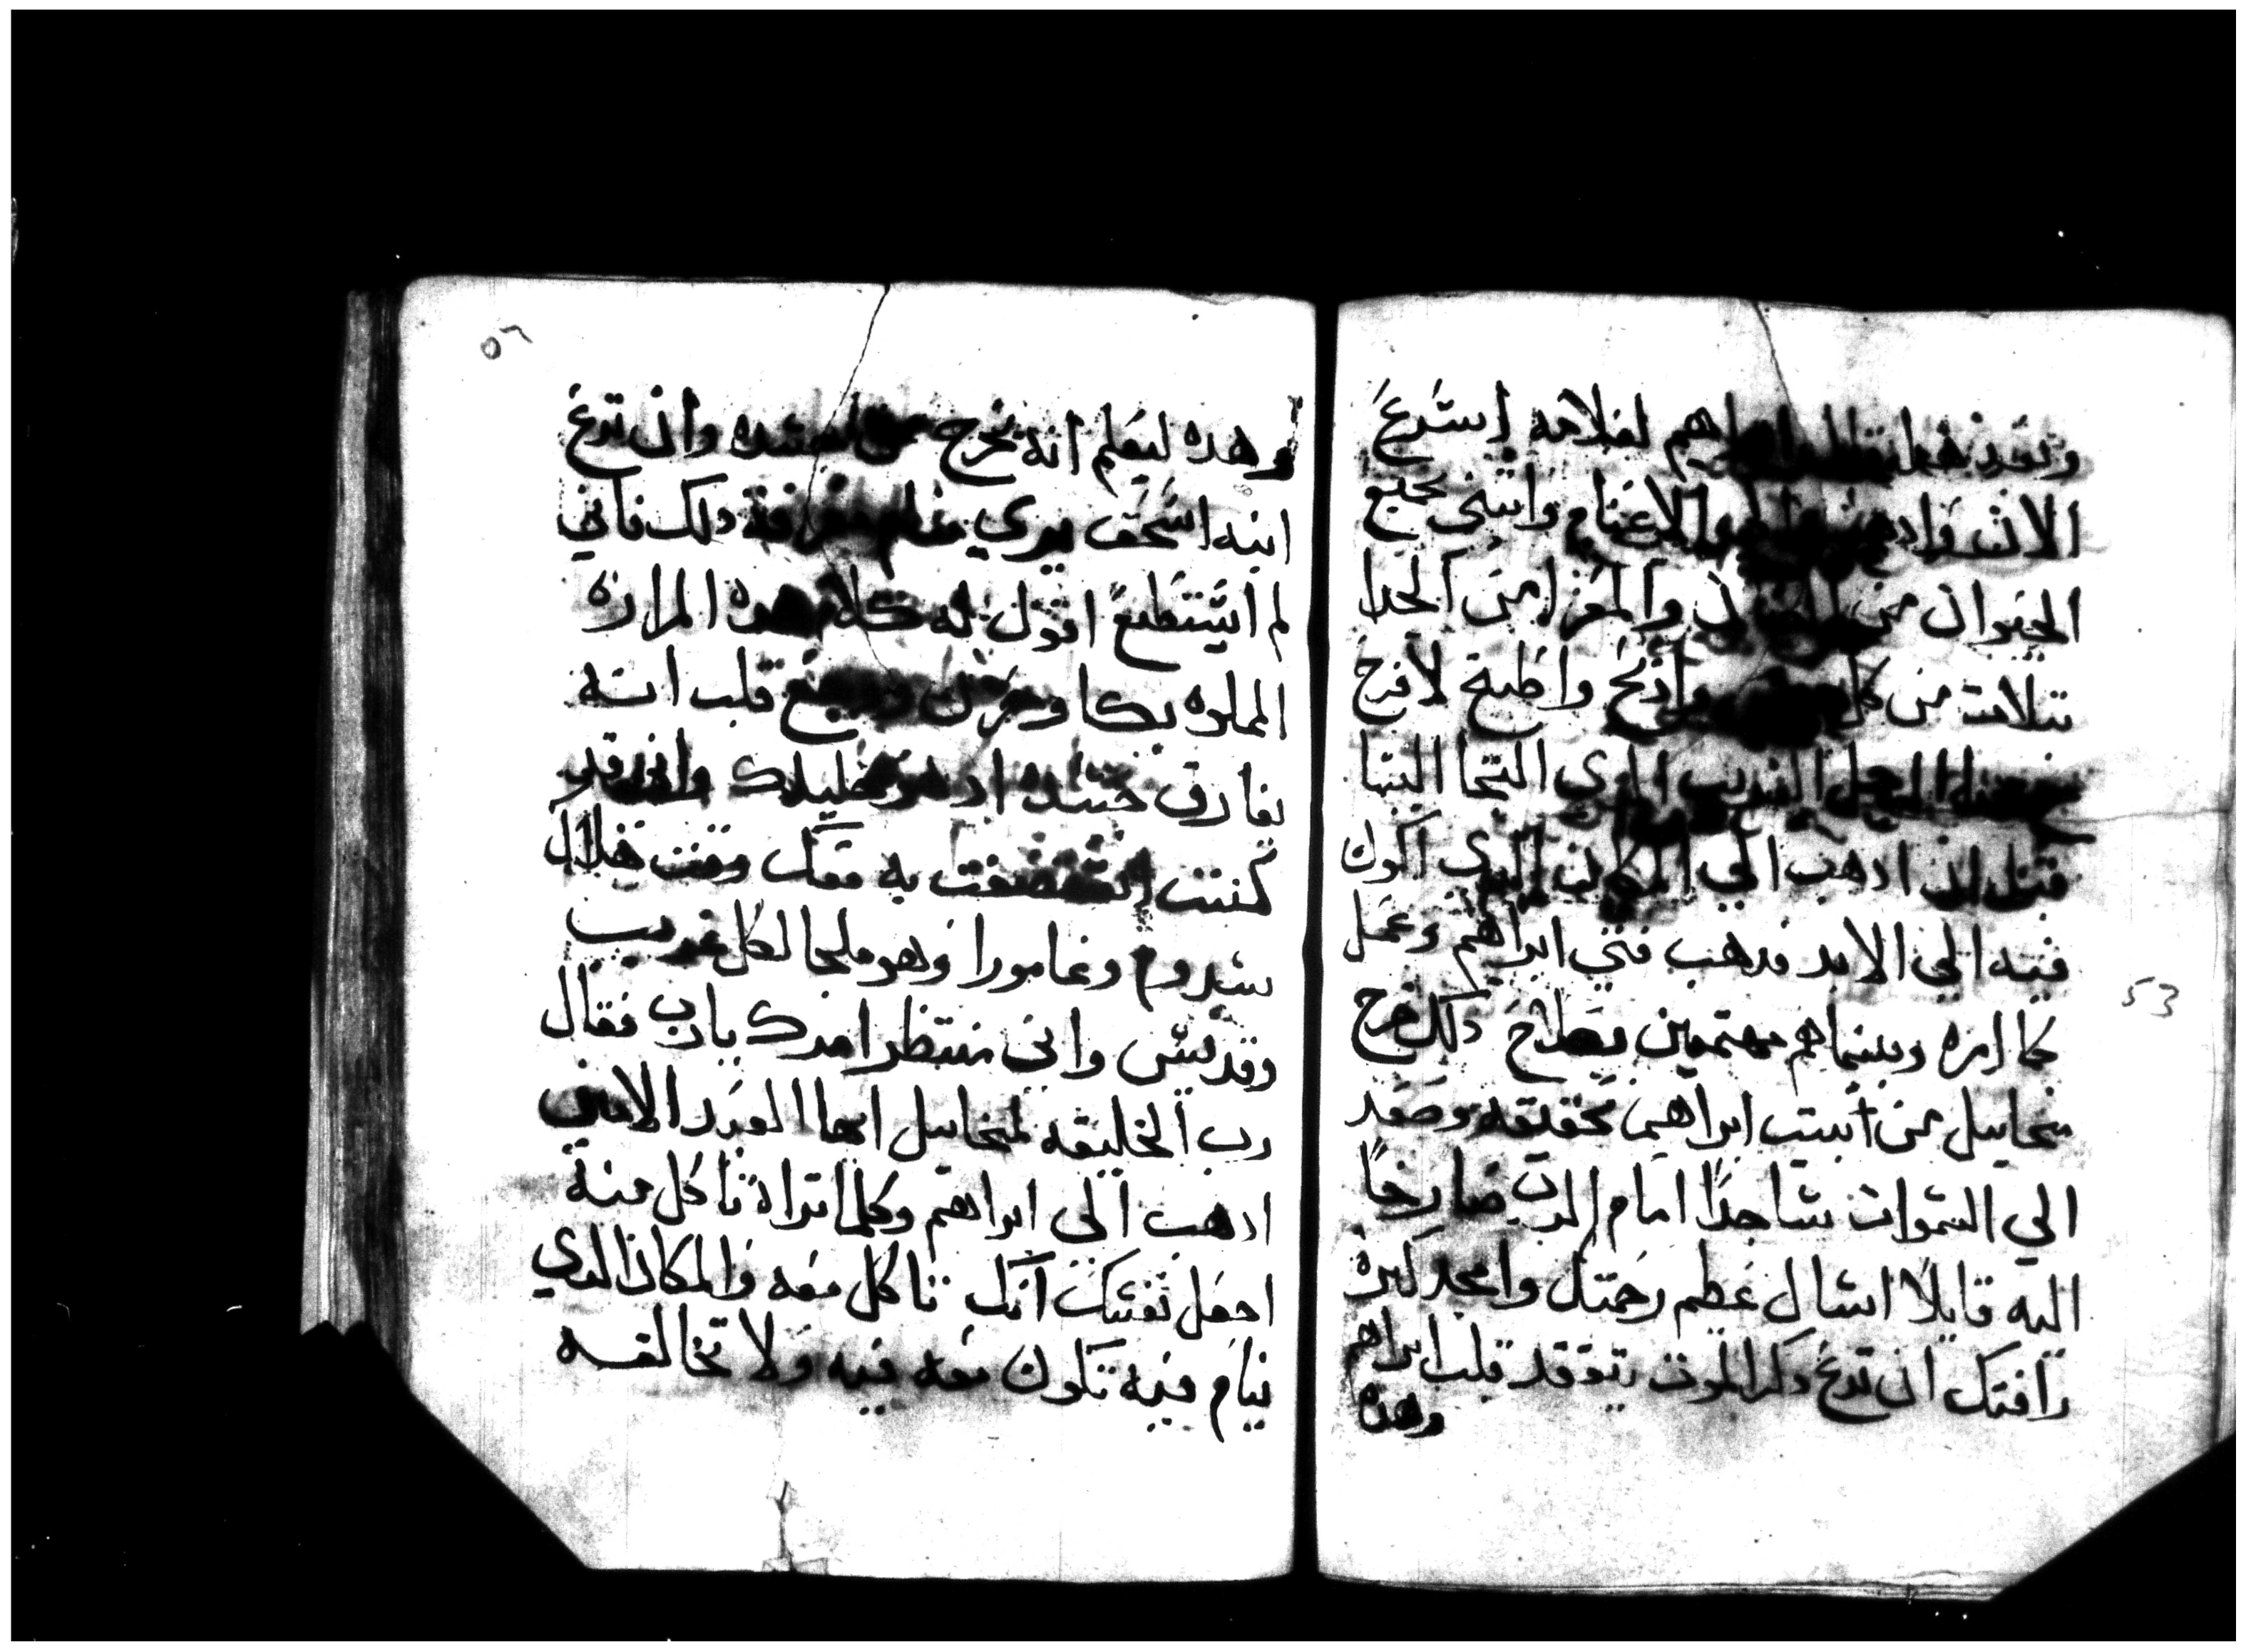 وبعد هدا قال ابراهيم لغلامه اسرع
الان واد الاغنام وانتني بجميع
الحيوان من والمعز من الجدا
تتلاتت من كل وادبح واطبخ لافرح
الرجل الغريب الدي التجا الينا
قبل ان ادهب الي المكان الدي اكون
فيه الي الابد فدهب فتي ابراهيم وعمل
كما امره وبينما هم مهتمين بصلاح دلك خرج
ميخاييل من بيت ابراهيم بحقيقه وصعد
الي السموات ساجدًا امام الرب صارخًا
اليه قايلًا اسال عظم رحمتك وامجد كترة
رافتك ان تدع دكر الموت يتوقد قلب ابراهيم
وهده
وهده ليعلم انه يخرج من جسده وان تدع
ابنه اسحق يري منام معرفة دلك فاني
لم استطيع اقول له كلام هده المراره
المملوه بكا وحزن ووجع قلب انه
يفارق جسده اد هو خليلك واني قد
كنت استضفت به معك وقت هلاك
سدوم وغامورا وهو ملجا لكل غريب
وقديس واني منتظر امرك يارب فقال
رب الخليقه لميخاييل ايها العبد الامين
ادهب الي ابراهيم وكلما تراه ياكل منه
اجعل نفسك انك تاكل معه والمكان الدي
ينام فيه تكون معه فيه ولا تخالفه
٥٦
53